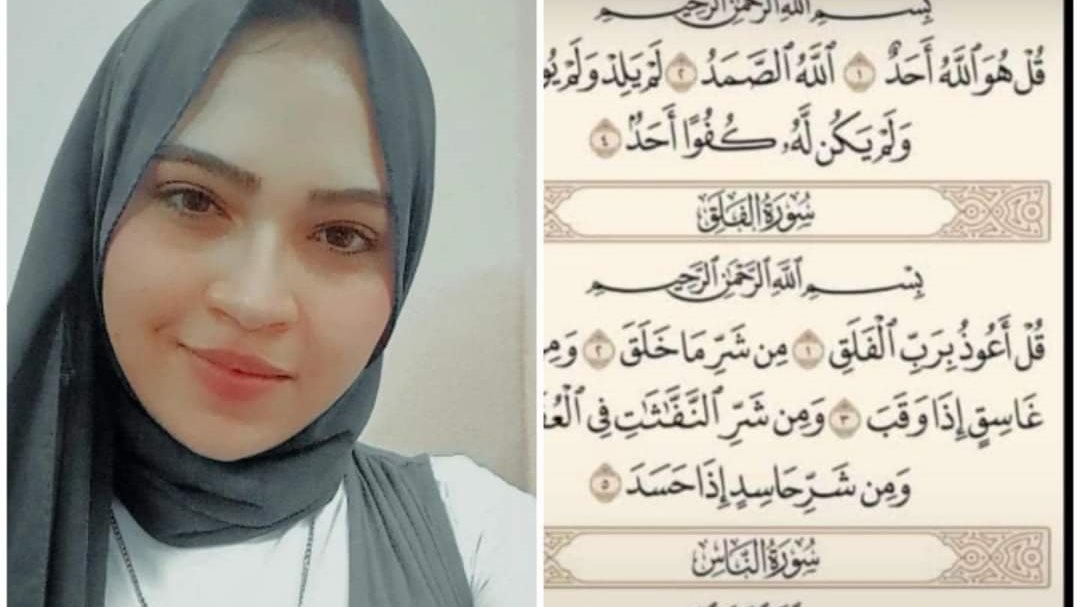 بِسْمِ ٱللَّهِ ٱلرَّحْمَٰنِ ٱلرَّحِيمِ
قُلْ هُوَ ٱللَّهُ أَحَدٌ ١ ٱللَّهُ ٱلصَّمَدُ ٢ لَمْ يَلِدْ وَلَمْ يُو
وَلَمْ يَكُن لَّهُۥ كُفُوًا أَحَدٌۢ ٤
سُورَةُ الفَلَقِ
بِسْمِ ٱللَّهِ ٱلرَّحْمَٰنِ ٱلرَّحِيمِ
قُلْ أَعُوذُ بِرَبِّ ٱلْفَلَقِ ١ مِن شَرِّ مَا خَلَقَ ٢ وَمِن
غَاسِقٍ إِذَا وَقَبَ ٣ وَمِن شَرِّ ٱلنَّفَّٰثَٰتِ فِى ٱلْعُقَ
وَمِن شَرِّ حَاسِدٍ إِذَا حَسَدَ ٥
سُورَةُ النَّاسِ